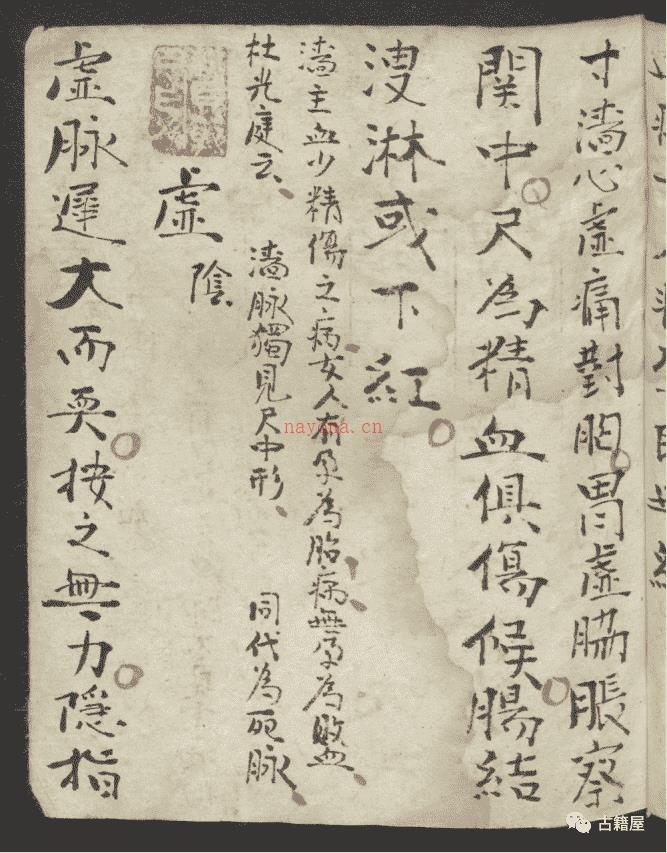 寸濇心虛痛對胸胃虛脇脹察
関中尺為精血俱傷候腸結
溲淋或下紅
濇主血少精傷之病女人有孕為胎病無孕為敗血
杜光庭云 濇脉獨見尺中形 同代為死脉
虛 陰
虛脉遲大而耎按之無力隱指
nayona.cn
古籍屋